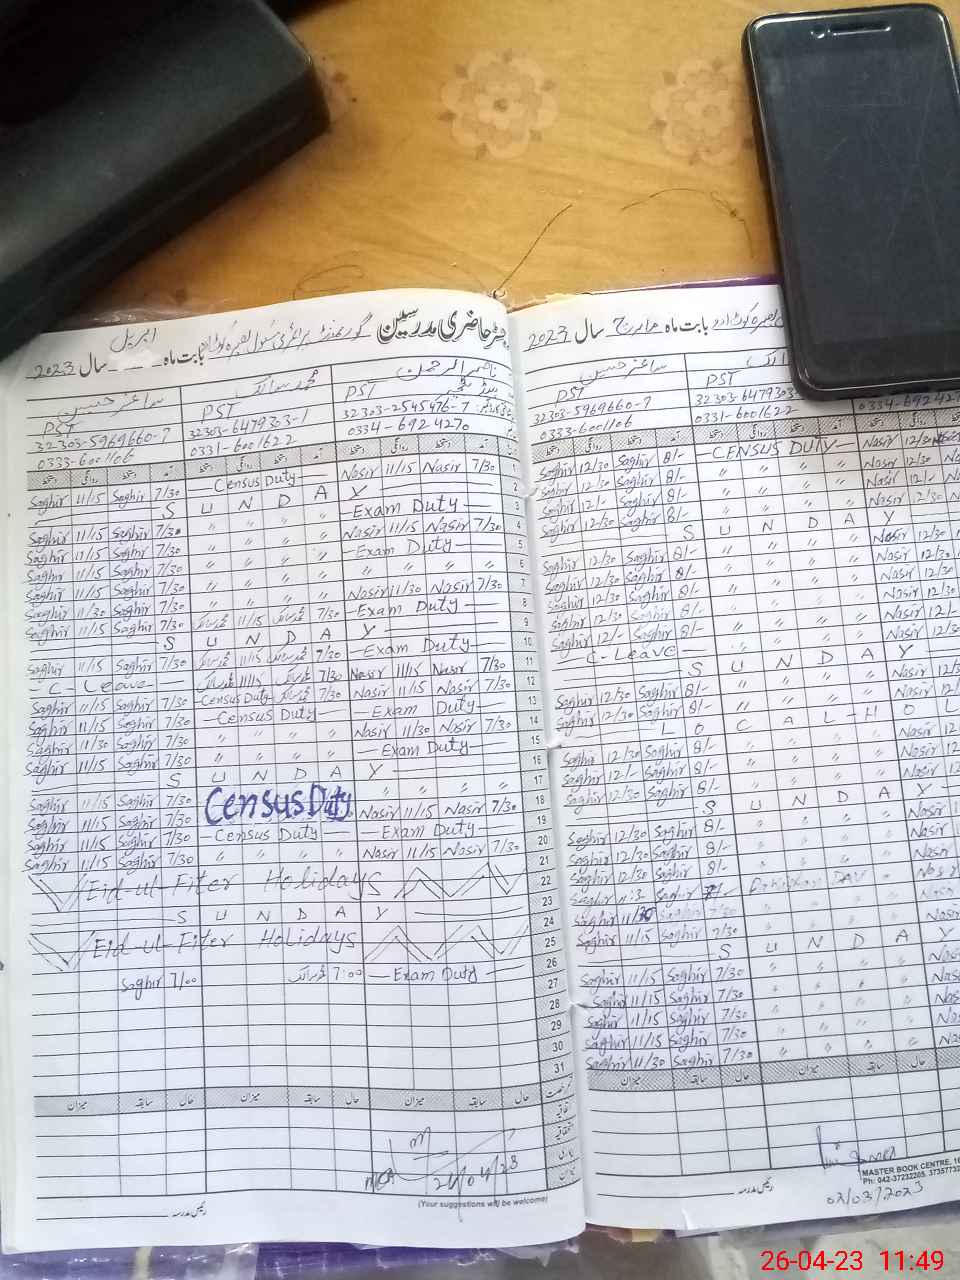 رجسٹر حاضری مدرسین گورنمنٹ پرائمری سکول بصیرہ کوٹ ادو بابت ماہ اپریل سال 2023
ساغر حسین محمد سالک ناصر الرحمن
PST PST ہیڈ ٹیچر
32303-5969660-7 32303-6479303-1 32303-2545476-7
0333-6001106 0331-6001622 0334-6924270
Saghir 11/15 Saghir 7/30 Census Duty Nasir 11/15 Nasir 7/30 1
S U N D A Y 2
Saghir 11/15 Saghir 7/30 " " " " Exam Duty 3
Saghir 11/15 Saghir 7/30 " " " " Nasir 11/15 Nasir 7/30 4
Saghir 11/15 Saghir 7/30 " " " " Exam Duty 5
Saghir 11/15 Saghir 7/30 " " " " " " " " 6
Saghir 11/30 Saghir 7/30 " " " " Nasir 11/30 Nasir 7/30 7
Saghir 11/15 Saghir 7/30 11/15 7/30 Exam Duty 8
S U N D A Y 9
Saghir 11/15 Saghir 7/30 11/15 7/30 Exam Duty 10
C-Leave 11/15 7/30 Nasir 11/15 Nasir 7/30 11
Saghir 11/15 Saghir 7/30 Census Duty 7/30 Nasir 11/15 Nasir 7/30 12
Saghir 11/15 Saghir 7/30 Census Duty Exam Duty 13
Saghir 11/30 Saghir 7/30 " " " " Nasir 11/30 Nasir 7/30 14
Saghir 11/15 Saghir 7/30 " " " " Exam Duty 15
S U N D A Y 16
Saghir 11/15 Saghir 7/30 Census Duty " " " " 17
Saghir 11/15 Saghir 7/30 Nasir 11/15 Nasir 7/30 18
Saghir 11/15 Saghir 7/30 Census Duty Exam Duty 19
Saghir 11/15 Saghir 7/30 " " " " Nasir 11/15 Nasir 7/30 20
Eid-ul-Fiter Holidays 21
22
S U N D A Y 23
Eid-ul-Fiter Holidays 24
25
Saghir 7/00 7:00 Exam Duty 26
27
28
29
30
31
میزان سابقہ حال میزان سابقہ حال میزان سابقہ حال
(Your suggestions will be welcome)
رئیس مدرسہ
بابت ماہ مارچ سال 2023
ساغر حسین
PST PST
32303-5969660-7 32303-6479303
0333-6001106 0331-6001622 0334-69242
Saghir 12/30 Saghir 8/- CENSUS DUTY Nasir 12/30
Saghir 12/30 Saghir 8/- " " " " Nasir 12/30
Saghir 12/- Saghir 8/- " " " " Nasir 12/-
Saghir 12/30 Saghir 8/- " " " " Nasir 12/30
S U N D A Y
Saghir 12/30 Saghir 8/- " " " " Nasir 12/30
Saghir 12/30 Saghir 8/- " " " " Nasir 12/30
Saghir 12/30 Saghir 8/- " " " " Nasir 12/30
Saghir 12/30 Saghir 8/- " " " " Nasir 12/30
Saghir 12/- Saghir 8/- " " " " Nasir 12/-
C-Leave " " " " Nasir 12/30
S U N D A Y
Saghir 12/30 Saghir 8/- " " " " Nasir 12/30
Saghir 12/30 Saghir 8/- " " " " Nasir 12/30
L O C A L H O L
Saghir 12/30 Saghir 8/- " " " " Nasir 12
Saghir 12/- Saghir 8/- " " " " Nasir 12/
Saghir 12/30 Saghir 8/- " " " " Nasir 12
S U N D A Y
Saghir 12/30 Saghir 8/- " " " " Nasir
Saghir 12/30 Saghir 8/- " " " " Nasir
Saghir 12/30 Saghir 8/- " " " " Nasir
Saghir DAY Nasir
Saghir 11/30 Saghir 7/30 " " " " Nasir
Saghir 11/15 Saghir 7/30 " " " " Nasir
S U N D A Y
Saghir 11/15 Saghir 7/30 " " " " Nasir
Saghir 11/15 Saghir 7/30 " " " " Nasir
Saghir 11/15 Saghir 7/30 " " " " Nasir
Saghir 11/15 Saghir 7/30 " " " " Nasir
Saghir 11/30 Saghir 7/30 " " " " Nas
میزان سابقہ حال میزان سابقہ حال
MASTER BOOK CENTRE, 16
Ph: 042-37232205, 3735773
02/03/2023
رئیس مدرسہ
26-04-23 11:49